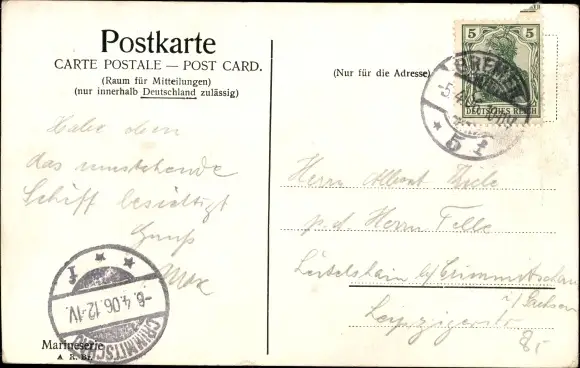 Postkarte
CARTE POSTALE — POST CARD.
(Raum für Mitteilungen)
(nur innerhalb Deutschland zulässig)
Habe eben
das umstehende
Schiff besichtigt
Gruß
Max
Marineserie
(Nur für die Adresse)
5 5
DEUTSCHES REICH
BREMEN
5
* 5 f
Herrn Albert
p. d. Herrn
b/ Crimmitschau
i/ Sachsen
Leipzigerstr
* * f
-6.4.06.12-1V.
CRIMMITSCHAU